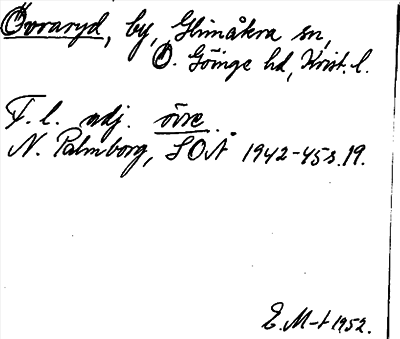 Övraryd, by, Glimåkra sn,
Ö. Göinge hd, Krist. l.
F. l. adj. övre.
N. Palmborg, SOÅ 1942-45 s. 19.
E. M-t 1952.